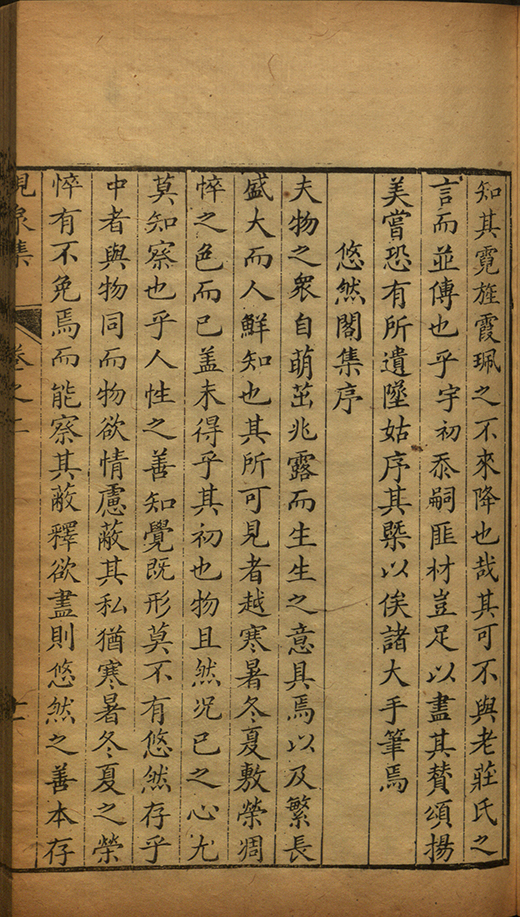 知其霓旌霞珮之不來降也哉其可不與老莊氏之
言而並傳也乎宇初忝嗣匪材豈足以盡其賛頌揚
美嘗恐有所遺墜姑序其槩以俟諸大手筆焉
悠然閣集序
夫物之衆自萌茁兆露而生生之意具焉以及繁長
盛大而人鮮知也其所可見者越寒暑冬夏敷榮凋
悴之色而已盖未得乎其初也物且然况已之心尤
莫知察也乎人性之善知覺既形莫不有悠然存乎
中者與物同而物欲情慮蔽其私猶寒暑冬夏之榮
悴有不免焉而能察其蔽釋欲盡則悠然之善本存
峴泉集 卷之二 十一